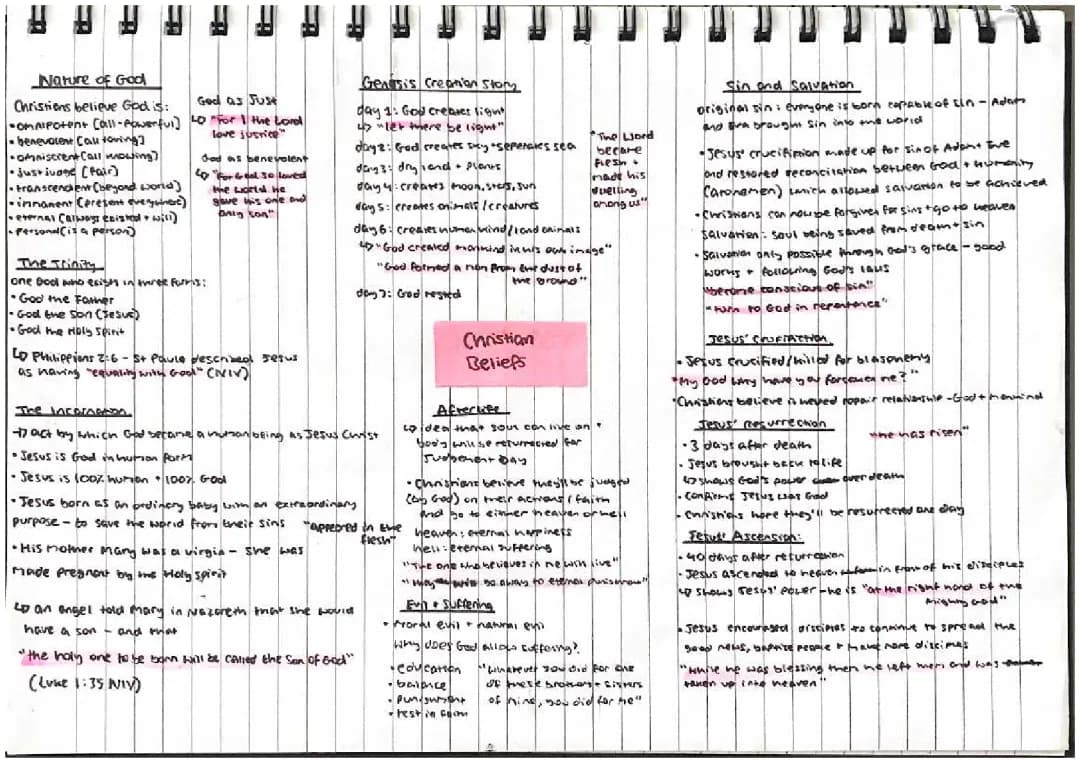 Nature of God
Christians believe God is:
• omnipotent (all-powerful)
• benevolent (all loving)
• omniscient (all knowing)
• just judge (fair)
• transcendent (beyond world)
• immanent (present everywhere)
• eternal (always existed + will)
• personal (is a person)
God as Just
↳ "For I the Lord
love justice"
God as benevolent
↳ "For God so loved
the world he
gave his one and
only son"
The Trinity
one God who exists in three forms:
• God the Father
• God the Son (Jesus)
• God the Holy Spirit
↳ Philippians 2:6 - St Paul described Jesus
as having "equality with God" (NIV)
The Incarnation
→ act by which God became a human being as Jesus Christ
• Jesus is God in human form
• Jesus is 100% human + 100% God
• Jesus born as an ordinary baby with an extraordinary
purpose - to save the world from their sins
"appeared in the
flesh"
• His mother Mary was a virgin - she was
made pregnant by the Holy Spirit
↳ an angel told Mary in Nazareth that she would
have a son - and that
"the holy one to be born will be called the Son of God"
(Luke 1:35 NIV)
Genesis Creation Story
day 1: God creates light
↳ "let there be light"
day 2: God creates sky + seperates sea
day 3: dry land + plants
day 4: creates moon, stars, sun
day 5: creates animals / creatures
day 6: creates human kind / land animals
↳ "God created mankind in his own image"
"God formed a man from the dust of
the ground"
day 7: God rested
"The Word
became
flesh +
made his
dwelling
among us"
Christian
Beliefs
Afterlife
↳ idea that soul can live on +
body will be resurrected for
Judgement Day
• Christians believe they'll be judged
(by God) on their actions / faith
and go to either heaven or hell
heaven: eternal happiness
hell: eternal suffering
"The one who believes in me will live"
"they will go away to eternal punishment"
Evil + Suffering
• Moral evil + natural evil
Why does God allow suffering?
• education
• balance
• punishment
• test in faith
"Whatever you did for one
of these brothers + sisters
of mine, you did for me"
Sin and Salvation
original sin: everyone is born capable of sin - Adam
and Eve brought sin into the world
• Jesus' crucifixion made up for sin of Adam + Eve
and restored reconciliation between God + humanity
(atonement) which allowed salvation to be achieved
• Christians can now be forgiven for sins + go to heaven
salvation: soul being saved from death + sin
• Salvation only possible through God's grace - good
works + following God's laws
"become conscious of sin"
"turn to God in repentance"
Jesus' Crucifixion
• Jesus crucified/killed for blasphemy
"My God why have you forsaken me?"
• Christians believe it helped repair relationship - God + mankind
Jesus' resurrection
"He has risen"
• 3 days after death
• Jesus brought back to life
↳ shows God's power over death
• confirms Jesus was God
• Christians hope they'll be resurrected one day
Jesus' Ascension:
• 40 days after resurrection
• Jesus ascended to heaven in front of his disciples
↳ shows Jesus' power - he is "at the right hand of the
mighty God"
• Jesus encouraged disciples to continue to spread the
good news, baptise people + make more disciples
"while he was blessing them he left them and was
taken up into heaven"